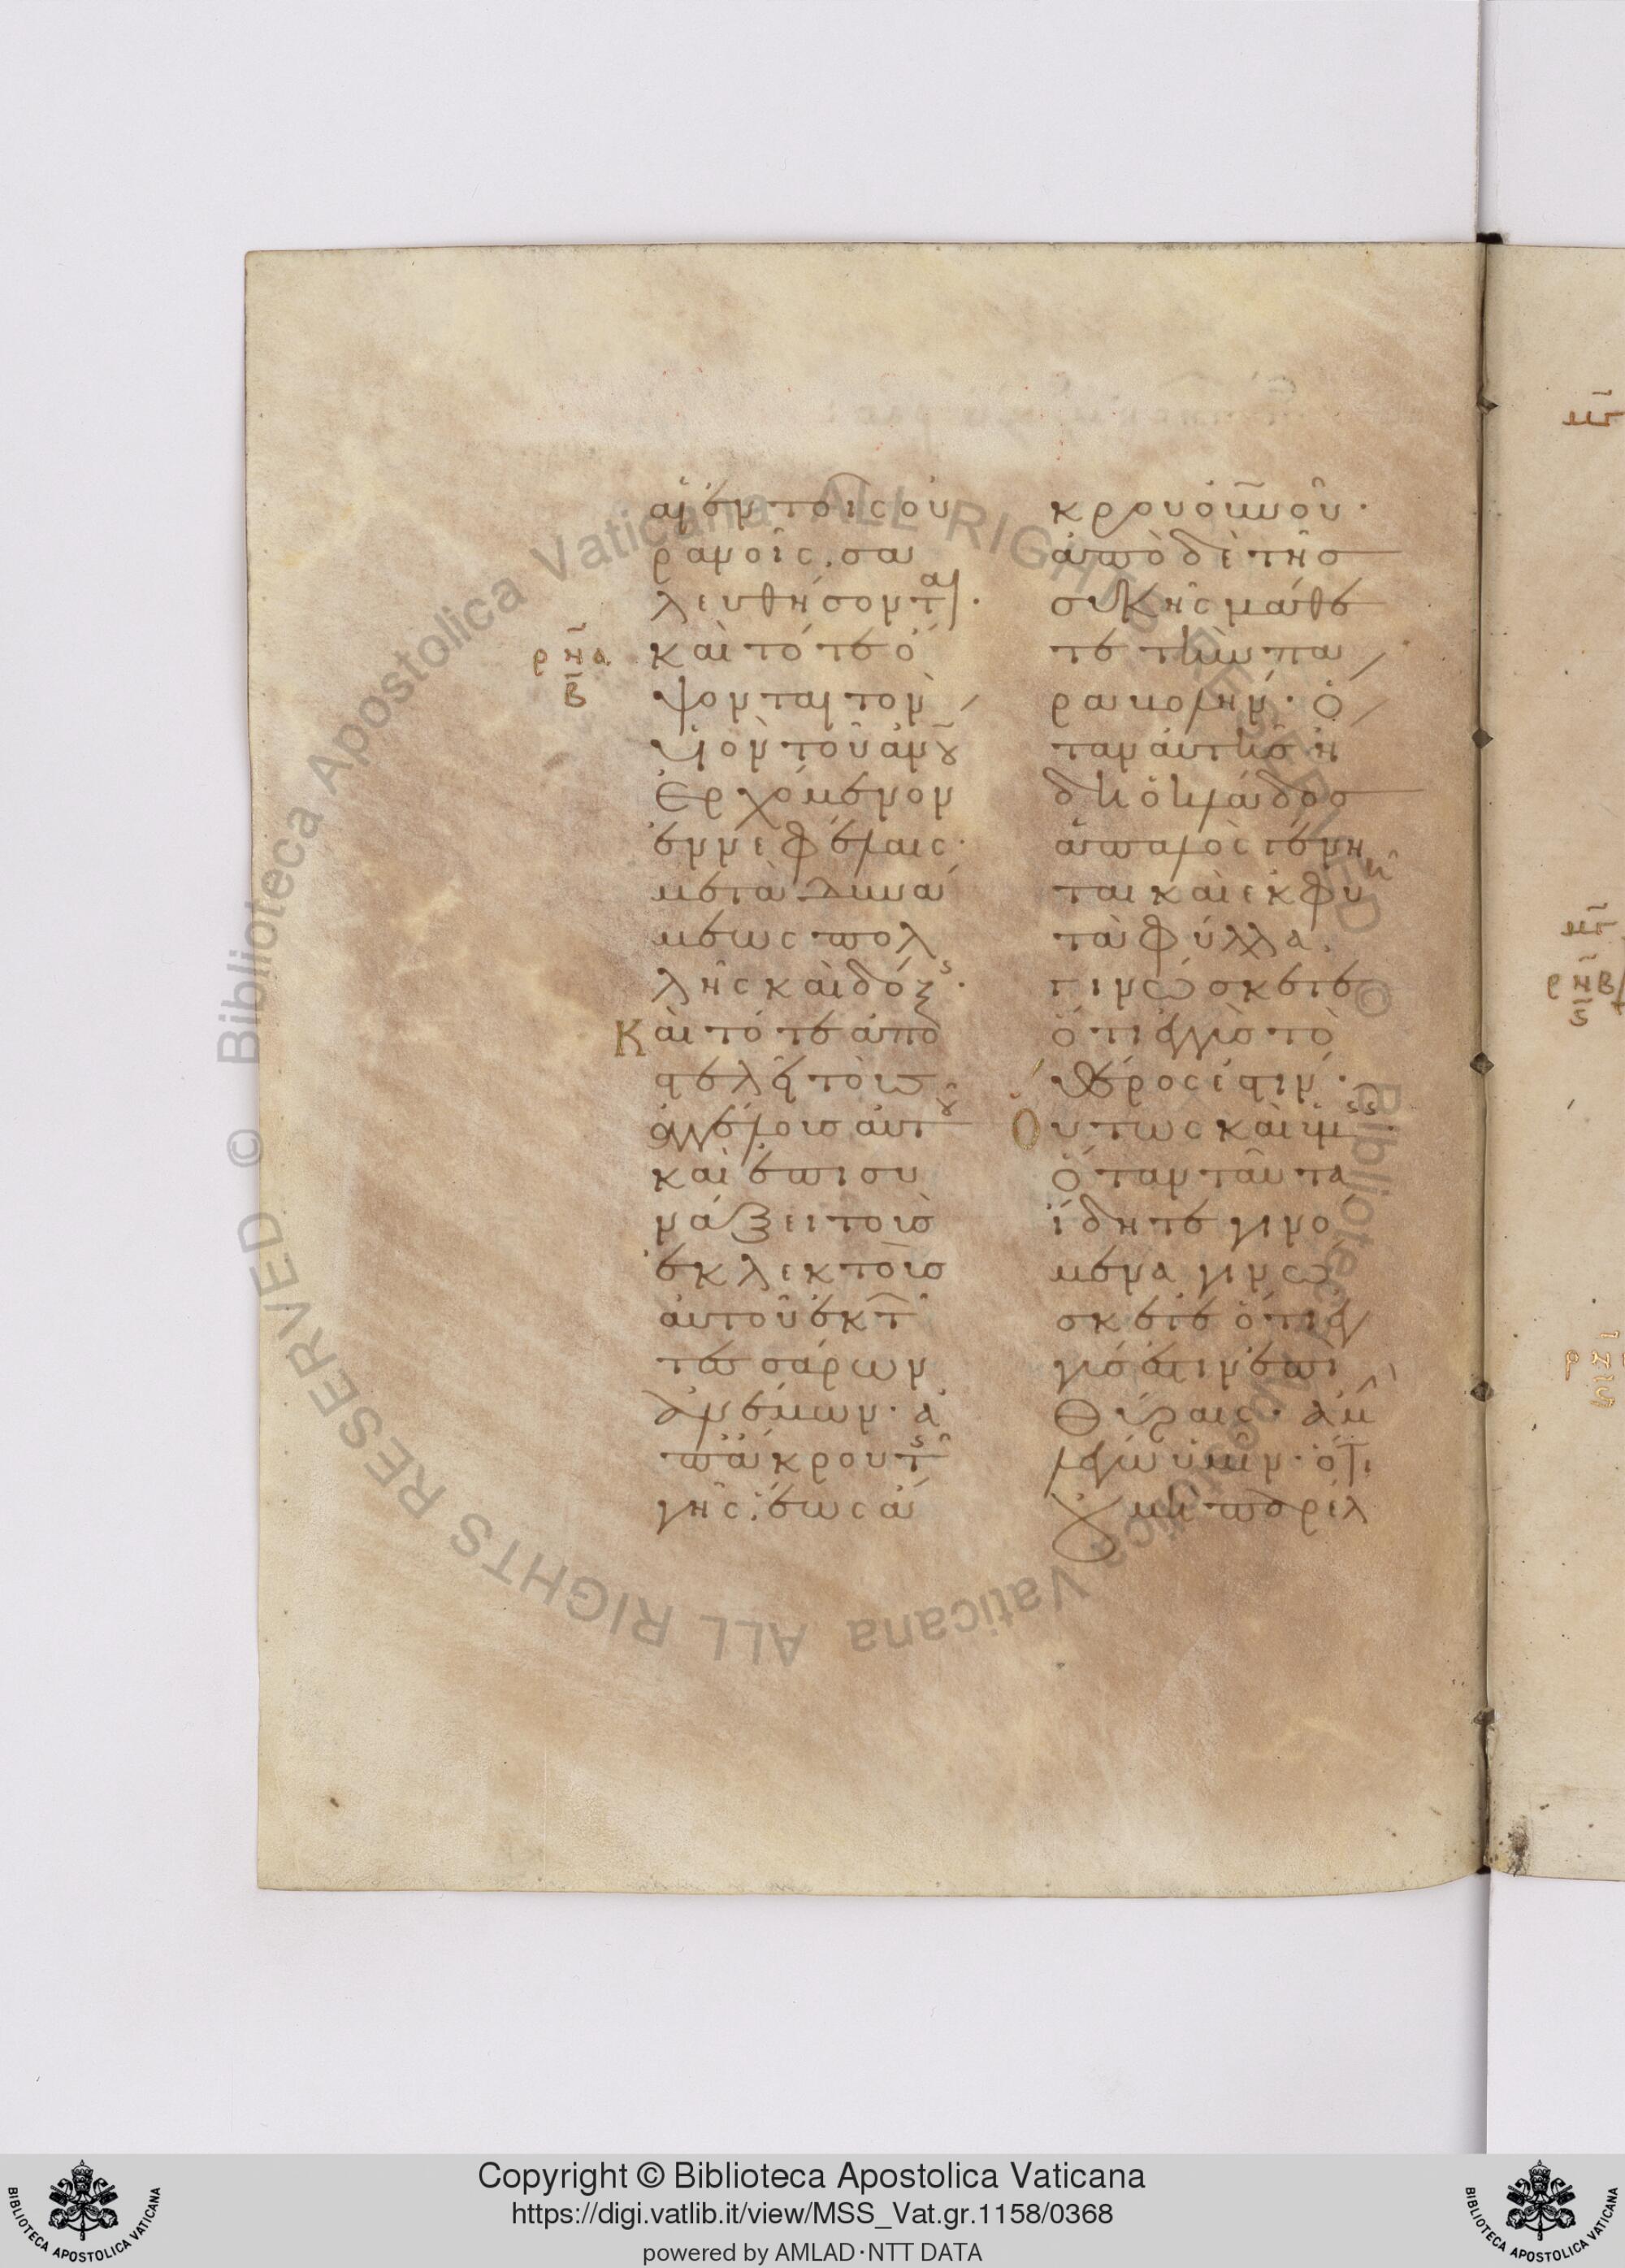 αἱ ἐν τοῖς οὐ
ρανοῖς, σα
λευθήσονται·
ρ̅ν̅α
β̅
καὶ τότε ὄ
ψονται τὸν
υἱὸν τοῦ ἀνου
ἐρχόμενον
ἐν νεφέλαις·
μετὰ δυνά
μεως πολ
λῆς καὶ δόξης·
Καὶ τότε ἀπο
στελεῖ τοὺς
ἀγγέλους αὐτοῦ
καὶ ἐπισυ
νάξει τοὺς
ἐκλεκτοὺς
αὐτοῦ ἐκ τῶν
τεσσάρων
ἀνέμων· ἀ
π' ἄκρου τῆς
γῆς, ἕως ἄ
κρου οὐνοῦ·
ἀπὸ δὲ τῆς
συκῆς μάθε
τε τὴν πα
ραβολήν· ὅ
ταν αὐτῆς ἤ
δη ὁ κλάδος
ἁπαλὸς γένη
ται καὶ ἐκφύῃ
τὰ φύλλα,
γινώσκετε
ὅτι ἐγγὺς τὸ
θέρος ἐστίν·
Οὕτως καὶ ὑμεῖς·
ὅταν ταῦτα
ἴδητε γινό
μενα γινώ
σκετε ὅτι ἐγ
γύς ἐστιν ἐπὶ
θύραις· ἀμὴν
λέγω ὑμῖν· ὅτι
οὐ μὴ παρέλ
Copyright © Biblioteca Apostolica Vaticana
https://digi.vatlib.it/view/MSS_Vat.gr.1158/0368
powered by AMLAD·NTT DATA
BIBLIOTECA APOSTOLICA VATICANA
BIBLIOTECA APOSTOLICA VATICANA
© Biblioteca Apostolica Vaticana ALL RIGHTS RESERVED
© Biblioteca Apostolica Vaticana ALL RIGHTS RESERVED